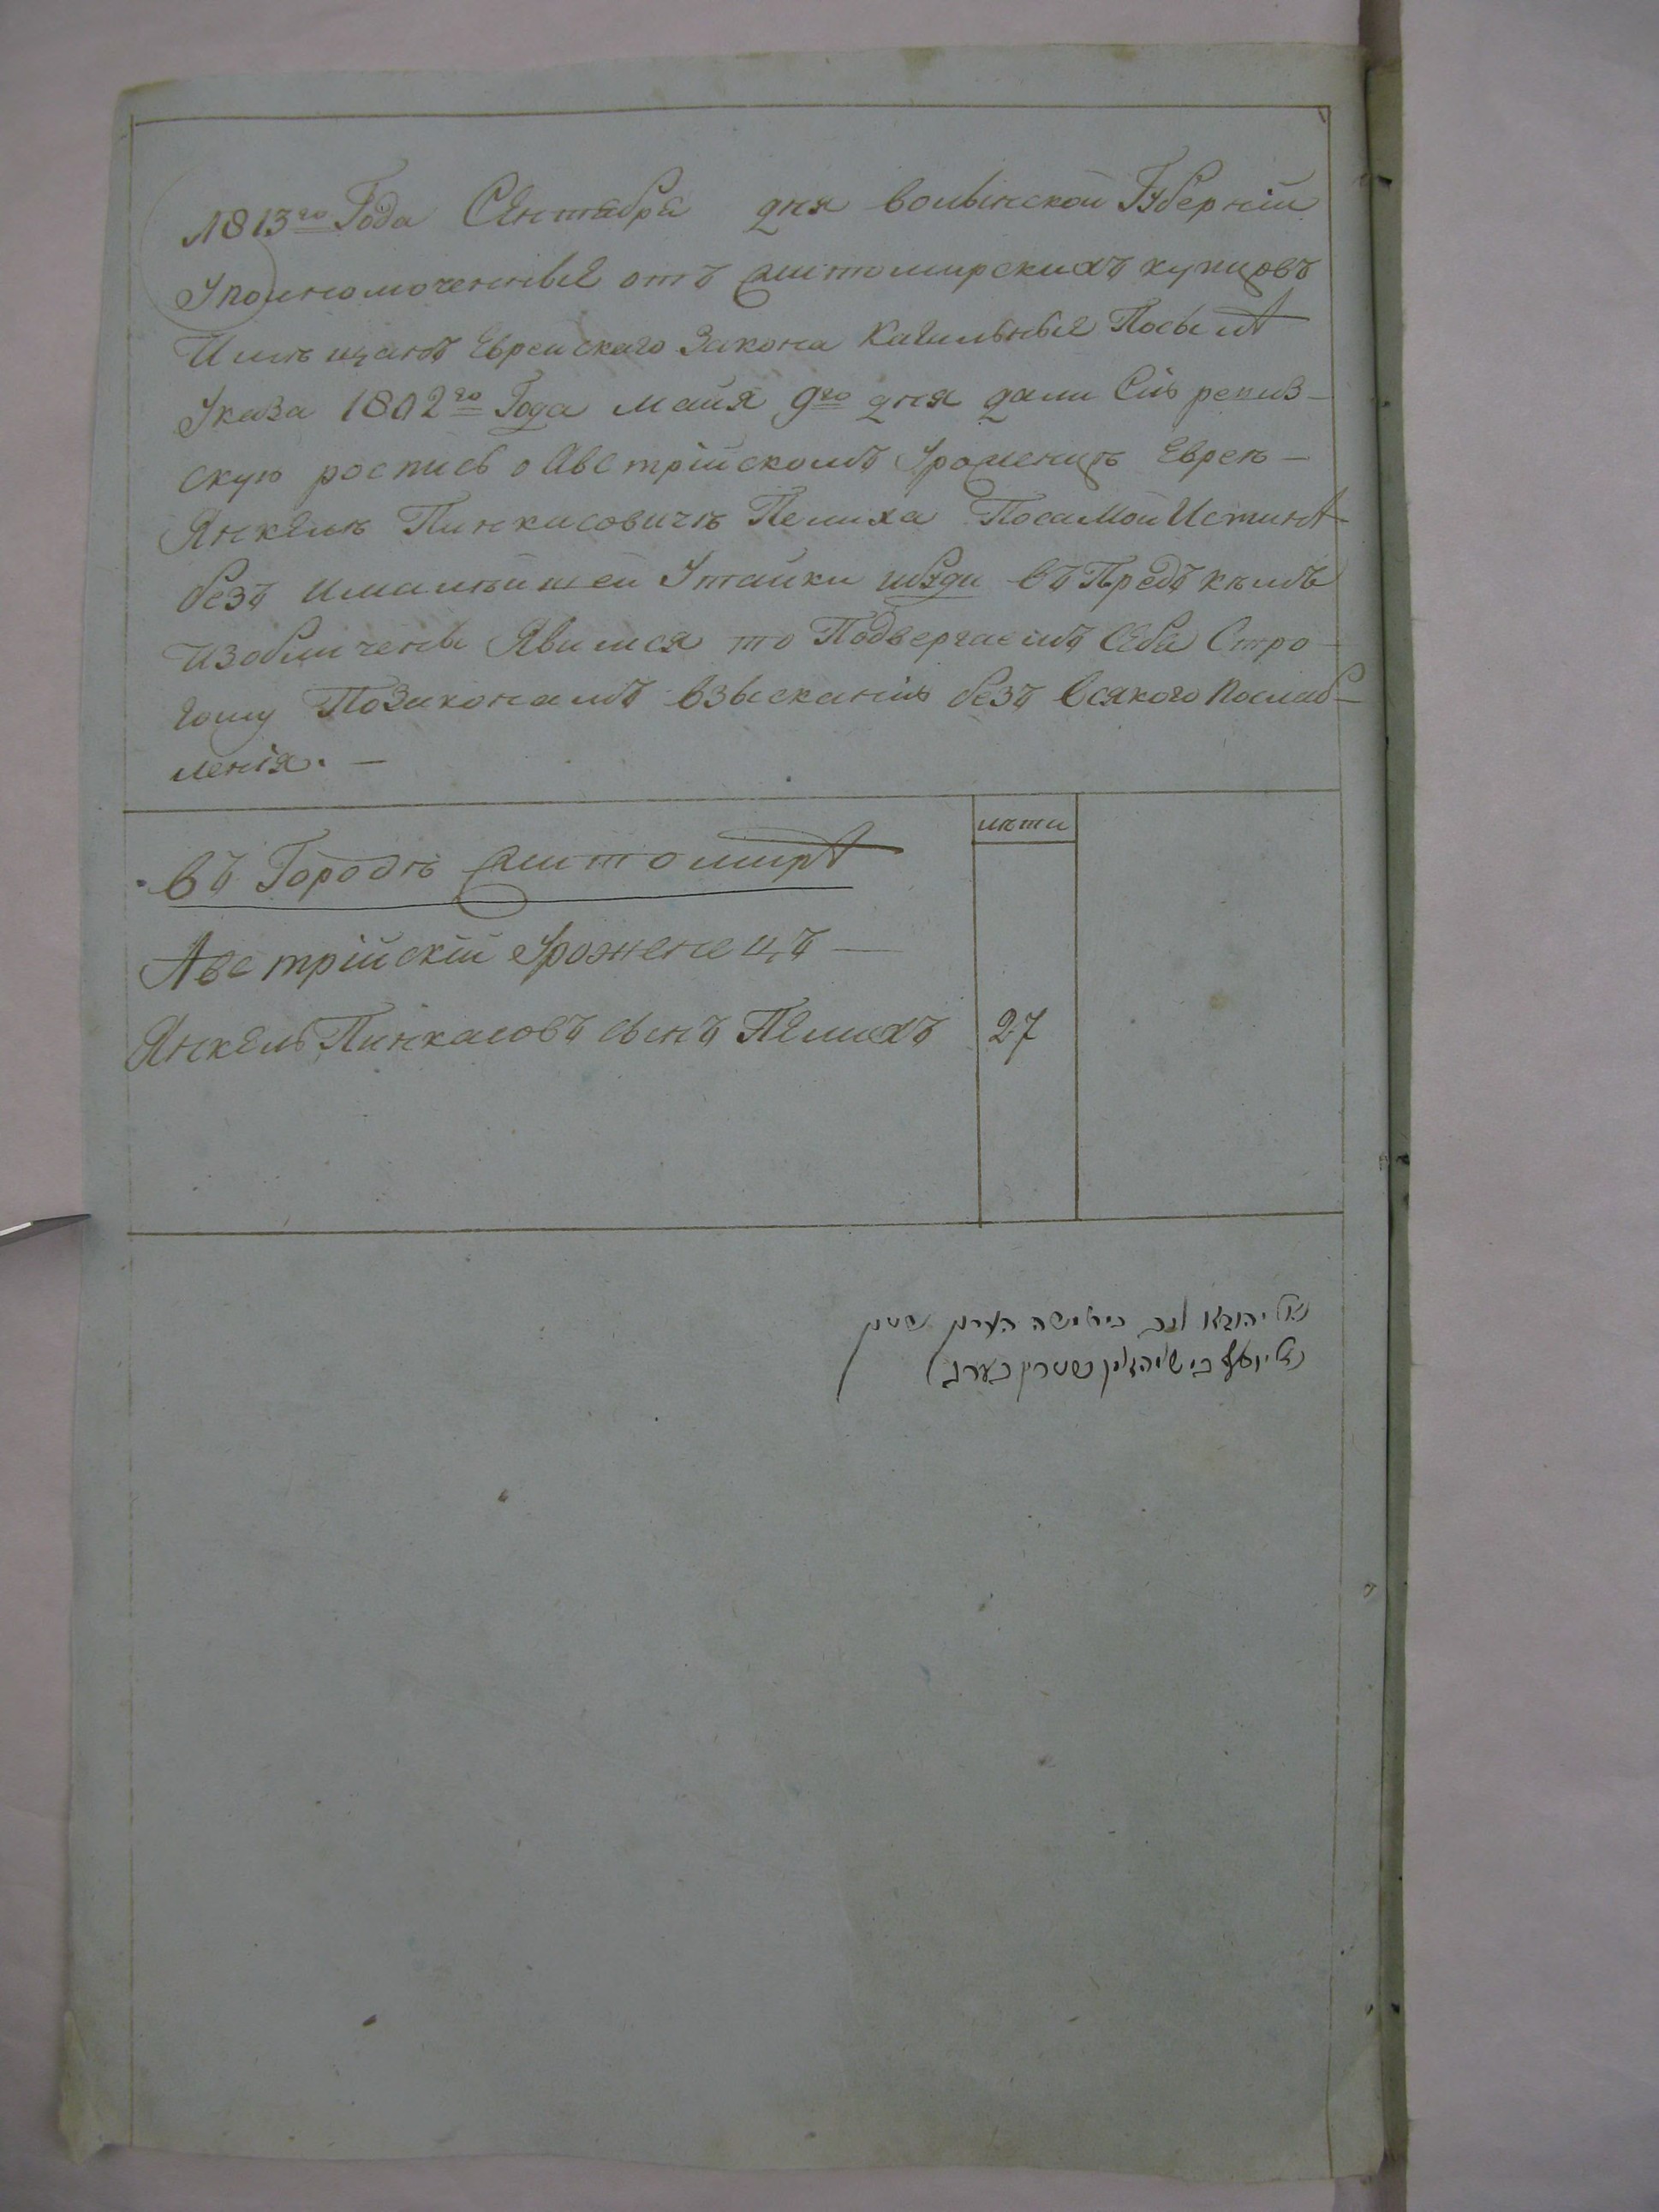 1813го Года Сентября дня волынской Губерніи
Уполномоченные отъ житомирскихъ купцовъ
И мѣщанъ Еврейскаго Закона Кагильные По силѣ
Указа 1802го Года майя 9го дня дали Сію ревиз-
скую роспись о Австрійскомъ Уроженцѣ Еврею
Янкелѣ Пинкасовичѣ Пелиха По самой Истинѣ
безъ и малѣйшей Утайки въ Предъ кѣмъ
изобличены Явимся то Подвергаемъ Себя Стро-
гому По Законамъ взысканію безъ всякого Послаб-
ленія. —
въ Городѣ житомирѣ
лѣти
Австрійскій Уроженецъ —
Янкель Пинкасовъ сынъ Пелихъ 27